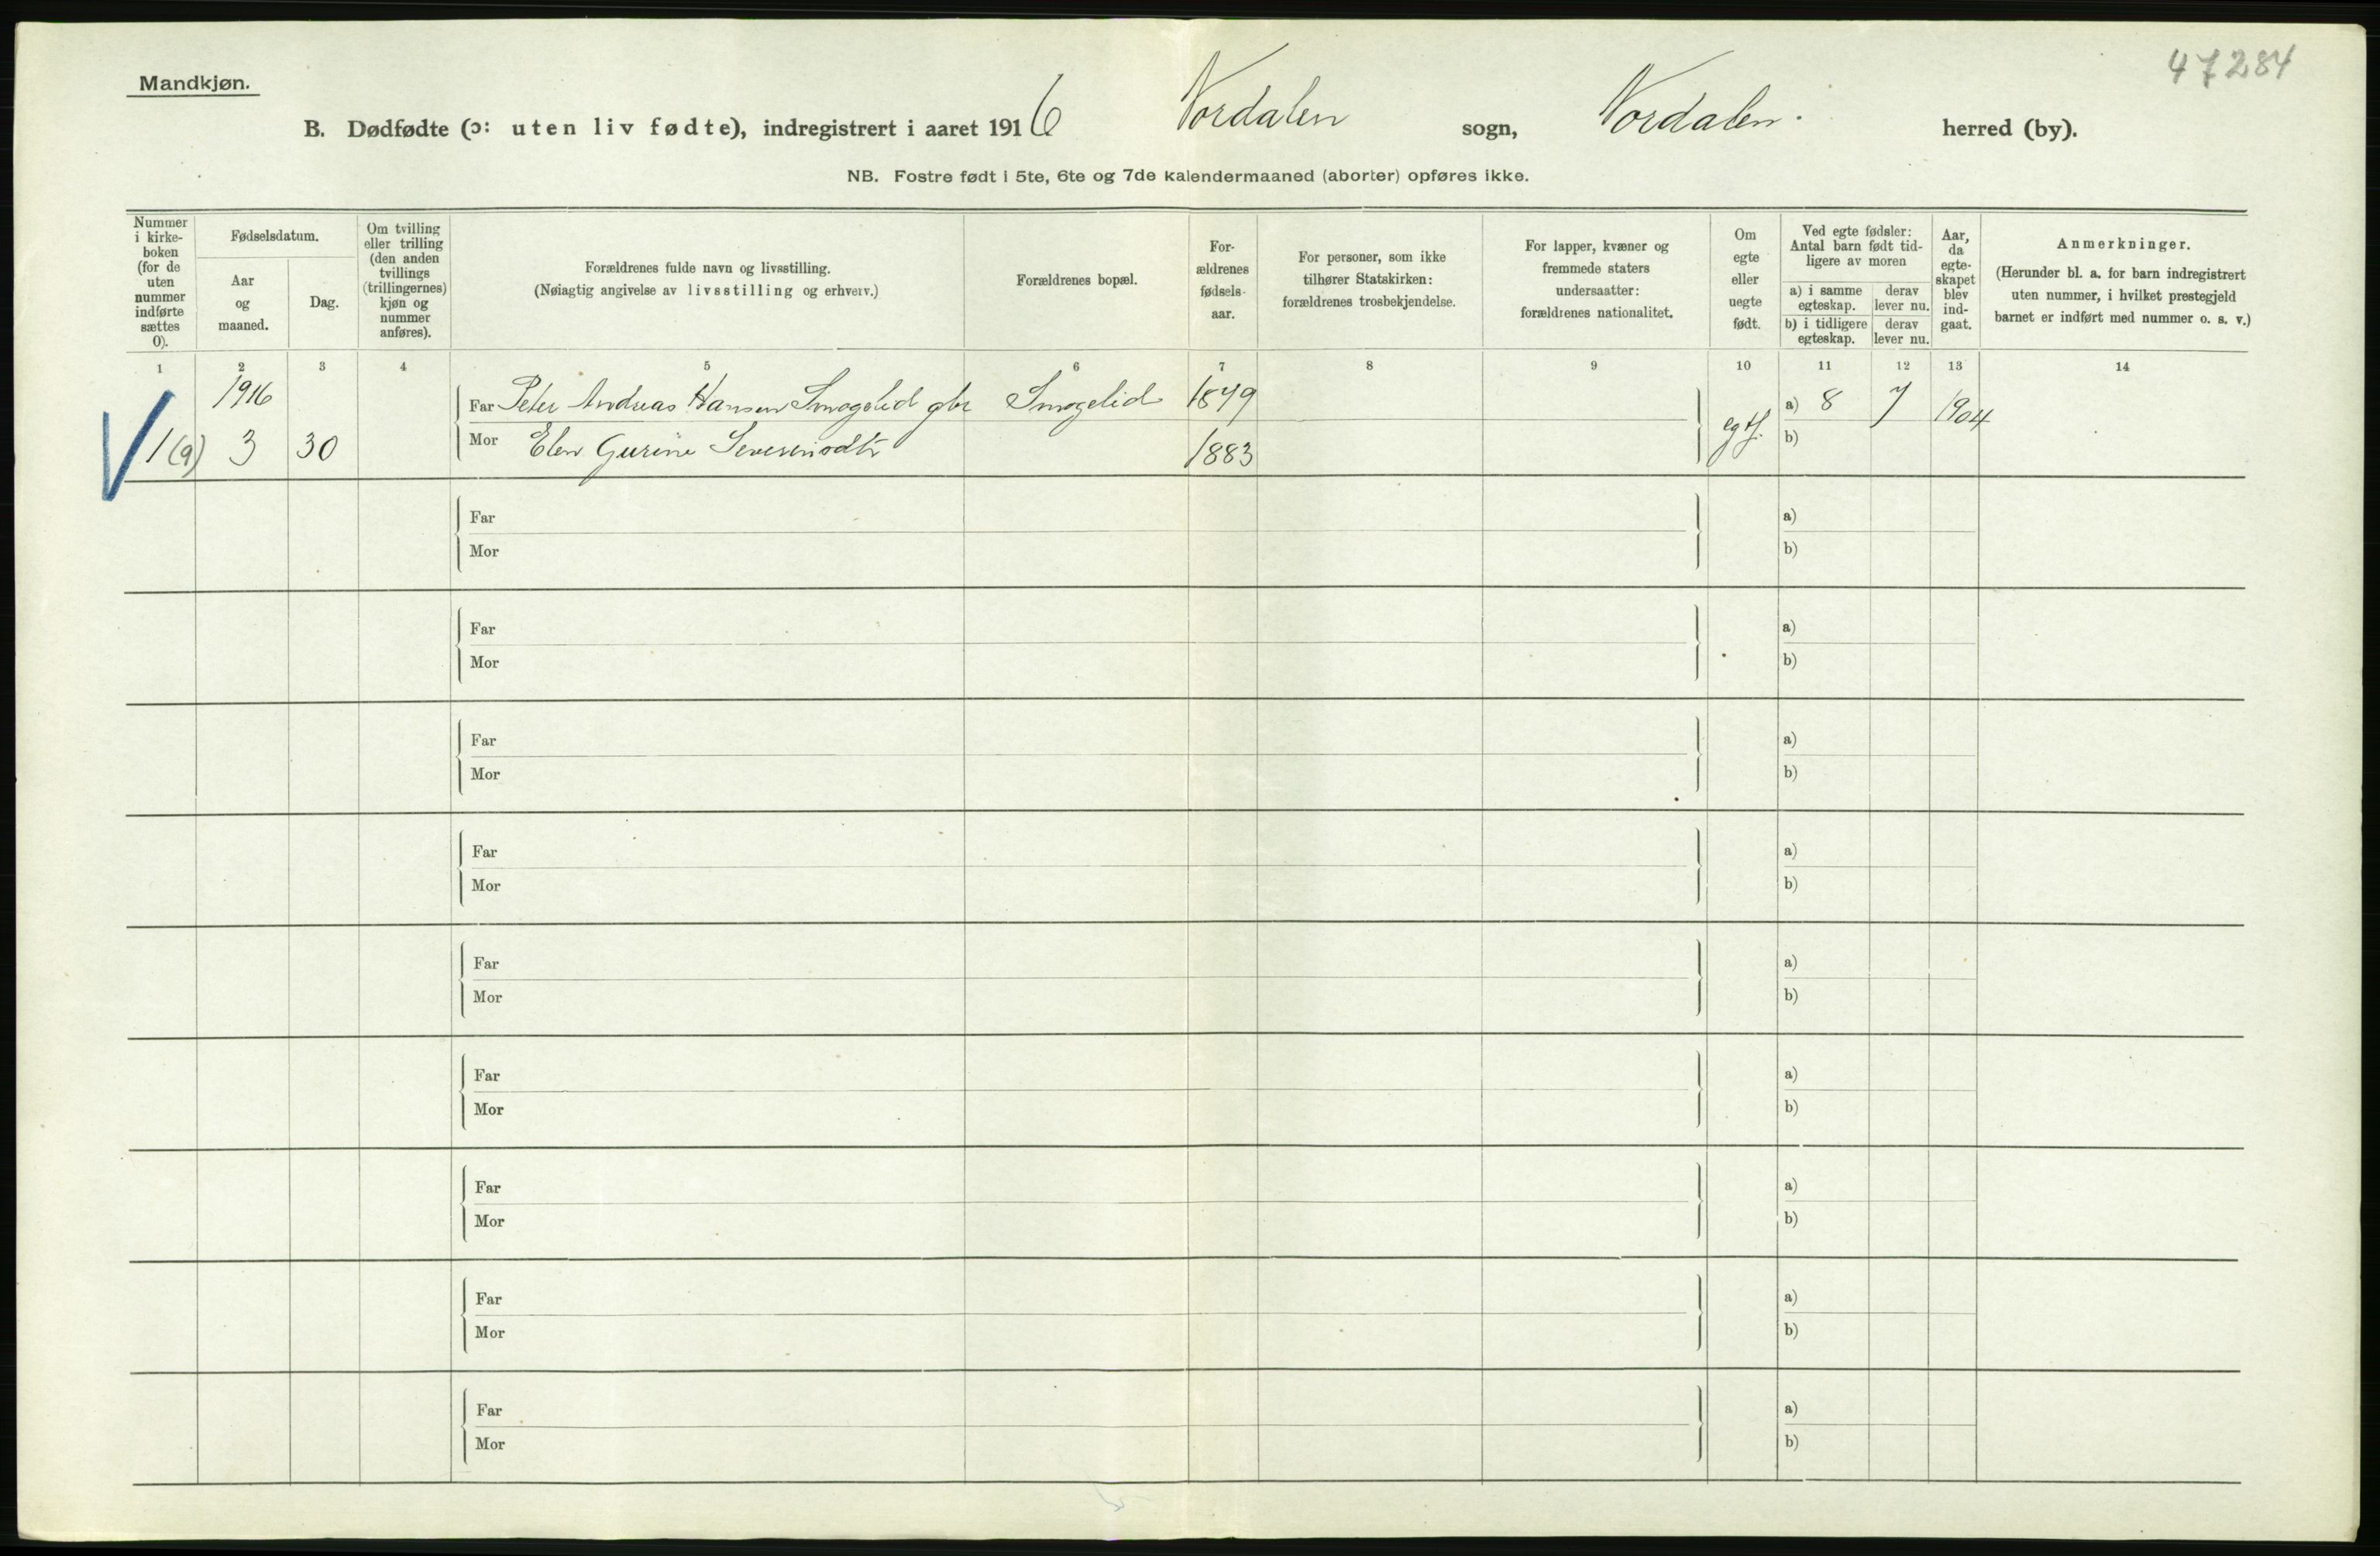 47284
Mandkjøn.
B. Dødfødte (ɔ: uten liv fødte), indregistrert i aaret 1916 Nordalen sogn, Nordalen herred (by).
NB. Fostre født i 5te, 6te og 7de kalendermaaned (aborter) opføres ikke.
Nummer i kirke-boken (for de uten nummer indførte sættes 0).
Fødselsdatum.
Aar og maaned.
Dag.
Om tvilling eller trilling (den anden tvillings (trillingernes) kjøn og nummer anføres).
Forældrenes fulde navn og livsstilling.
(Nøiagtig angivelse av livsstilling og erhverv.)
Forældrenes bopæl.
For-ældrenes fødsels-aar.
For personer, som ikke tilhører Statskirken: forældrenes trosbekjendelse.
For lapper, kvæner og fremmede staters undersaatter: forældrenes nationalitet.
Om egte eller uegte født.
Ved egte fødsler: Antal barn født tid-ligere av moren
a) i samme egteskap.
derav lever nu.
b) i tidligere egteskap.
derav lever nu.
Aar, da egte-skapet blev ind-gaat.
Anmerkninger.
(Herunder bl. a. for barn indregistrert uten nummer, i hvilket prestegjeld barnet er indført med nummer o. s. v.)
1 2 3 4 5 6 7 8 9 10 11 12 13 14
1916 Far Peter Andreas Hansen Smogelid gbr Smogelid 1879 a) 8 7 1904
1(a) 3 30 Mor Elen Gurine Severinsdtr 1883 egtf. b)
Far a)
Mor b)
Far a)
Mor b)
Far a)
Mor b)
Far a)
Mor b)
Far a)
Mor b)
Far a)
Mor b)
Far a)
Mor b)
Far a)
Mor b)
Far a)
Mor b)